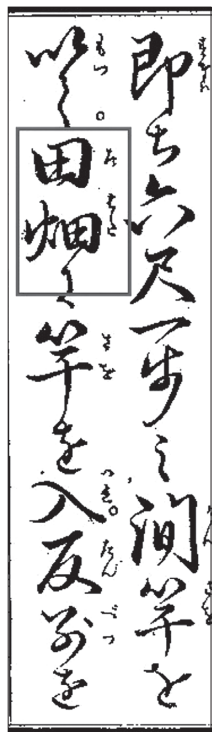 即ち六尺一歩之間竿を
以て。田畑に竿を入。反別を